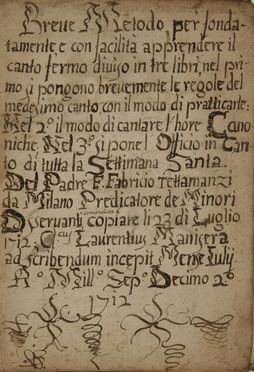 Breve Metodo per fonda-
tamente, e con facilità apprendere il
canto fermo diviso in tre libri, nel pri-
mo si pongono brevemente le regole del
medesimo canto con il modo di pratticarle:
Nel 2º il modo di cantare l'hore Cano
niche, Nel 3º si pone l Officio in Can
to di tutta la Settimana Santa.
Del Padre F. Fabricio Tettamanzi
da Milano Predicatore de Minori
Osservanti copiare li 23 di Luglio
1712, Laurentius
ad scribendum incepit Mense Iulij
Aº Millº Sepº Decimo 2º
1712